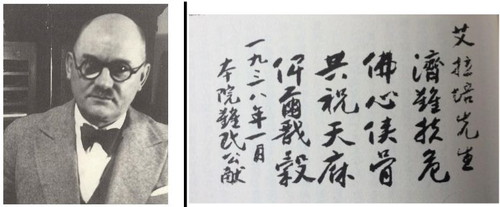 艾拉培先生
濟難扶危
佛心侠骨
共祝天庥
俾爾戩穀
一九三八年一月
本院難民公献